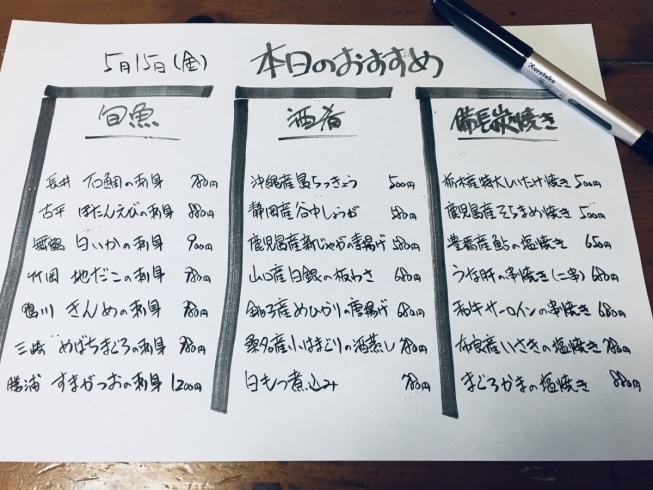 5月15日(金) 本日のおすすめ
旬魚
長井 石鯛の刺身 780円
古平 ぼたんえびの刺身 880円
舞鶴 白いかの刺身 900円
竹岡 地だこの刺身 780円
鴨川 きんめの刺身 780円
三崎 めばちまぐろの刺身 780円
勝浦 すまがつおの刺身 1200円
酒肴
沖縄産島らっきょう 500円
静岡産谷中しょうが 580円
鹿児島産新じゃがの唐揚げ 580円
山口産白銀の板わさ 680円
銚子産めひかりの唐揚げ 680円
桑名産小はまぐりの酒蒸し 780円
白もつ煮込み 780円
備長炭焼き
栃木産特大しいたけ焼き 500円
鹿児島産そらまめ焼き 500円
豊橋産鮎の塩焼き 650円
うな肝の串焼き(二串) 680円
和牛サーロインの串焼き 680円
布良産いさきの塩焼き 780円
まぐろかまの塩焼き 880円